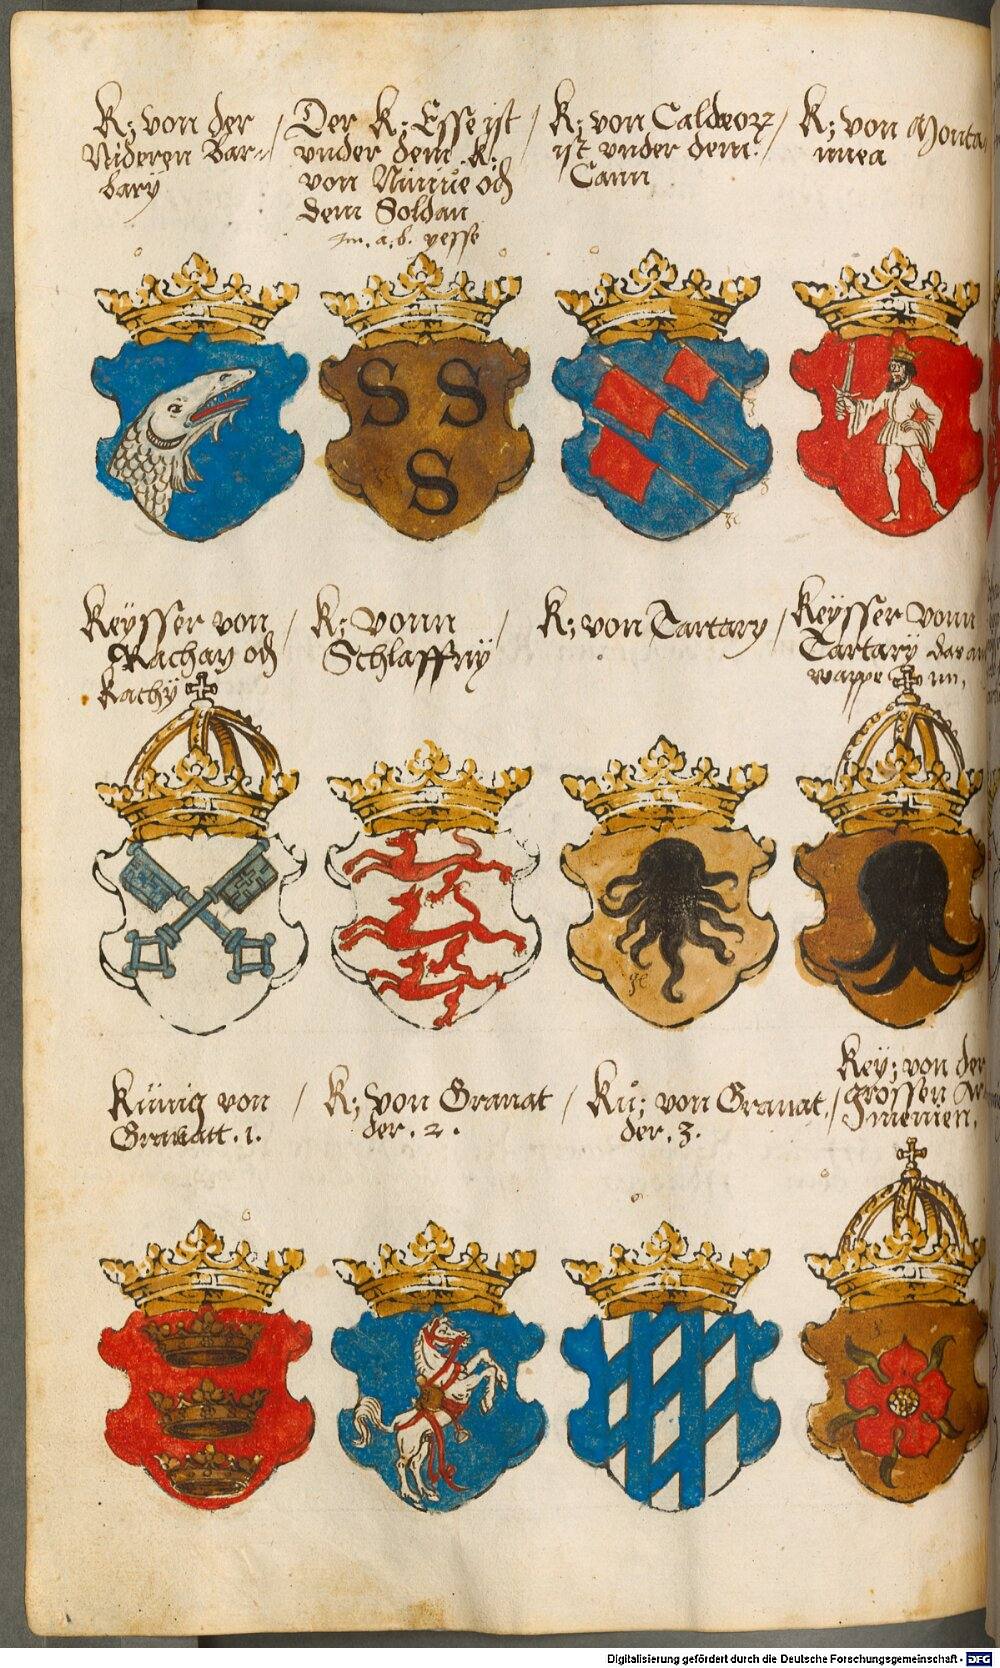 K; von der
Nideren Bar=
barÿ
Der K; Esse ist
vnder dem K;
von Niniue od
dem Soldan
Im. a. b. yesse
K; von Caldeorz
ist vnder dem
Cann
K; von Monta
nnea
S S
S
Keÿsser von
Rachay od
Kachÿ
K; vonn
Schlaffnÿ
K; von Tartary
Keÿsser vonn
Tartarÿ das an
wappe im,
Künig von
Granatt . 1.
K; von Granat
der . 2 .
Kü; von Granat.
der . 3.
Keÿ; von der
grossen Ar
menien.
Digitalisierung gefördert durch die Deutsche Forschungsgemeinschaft - DFG